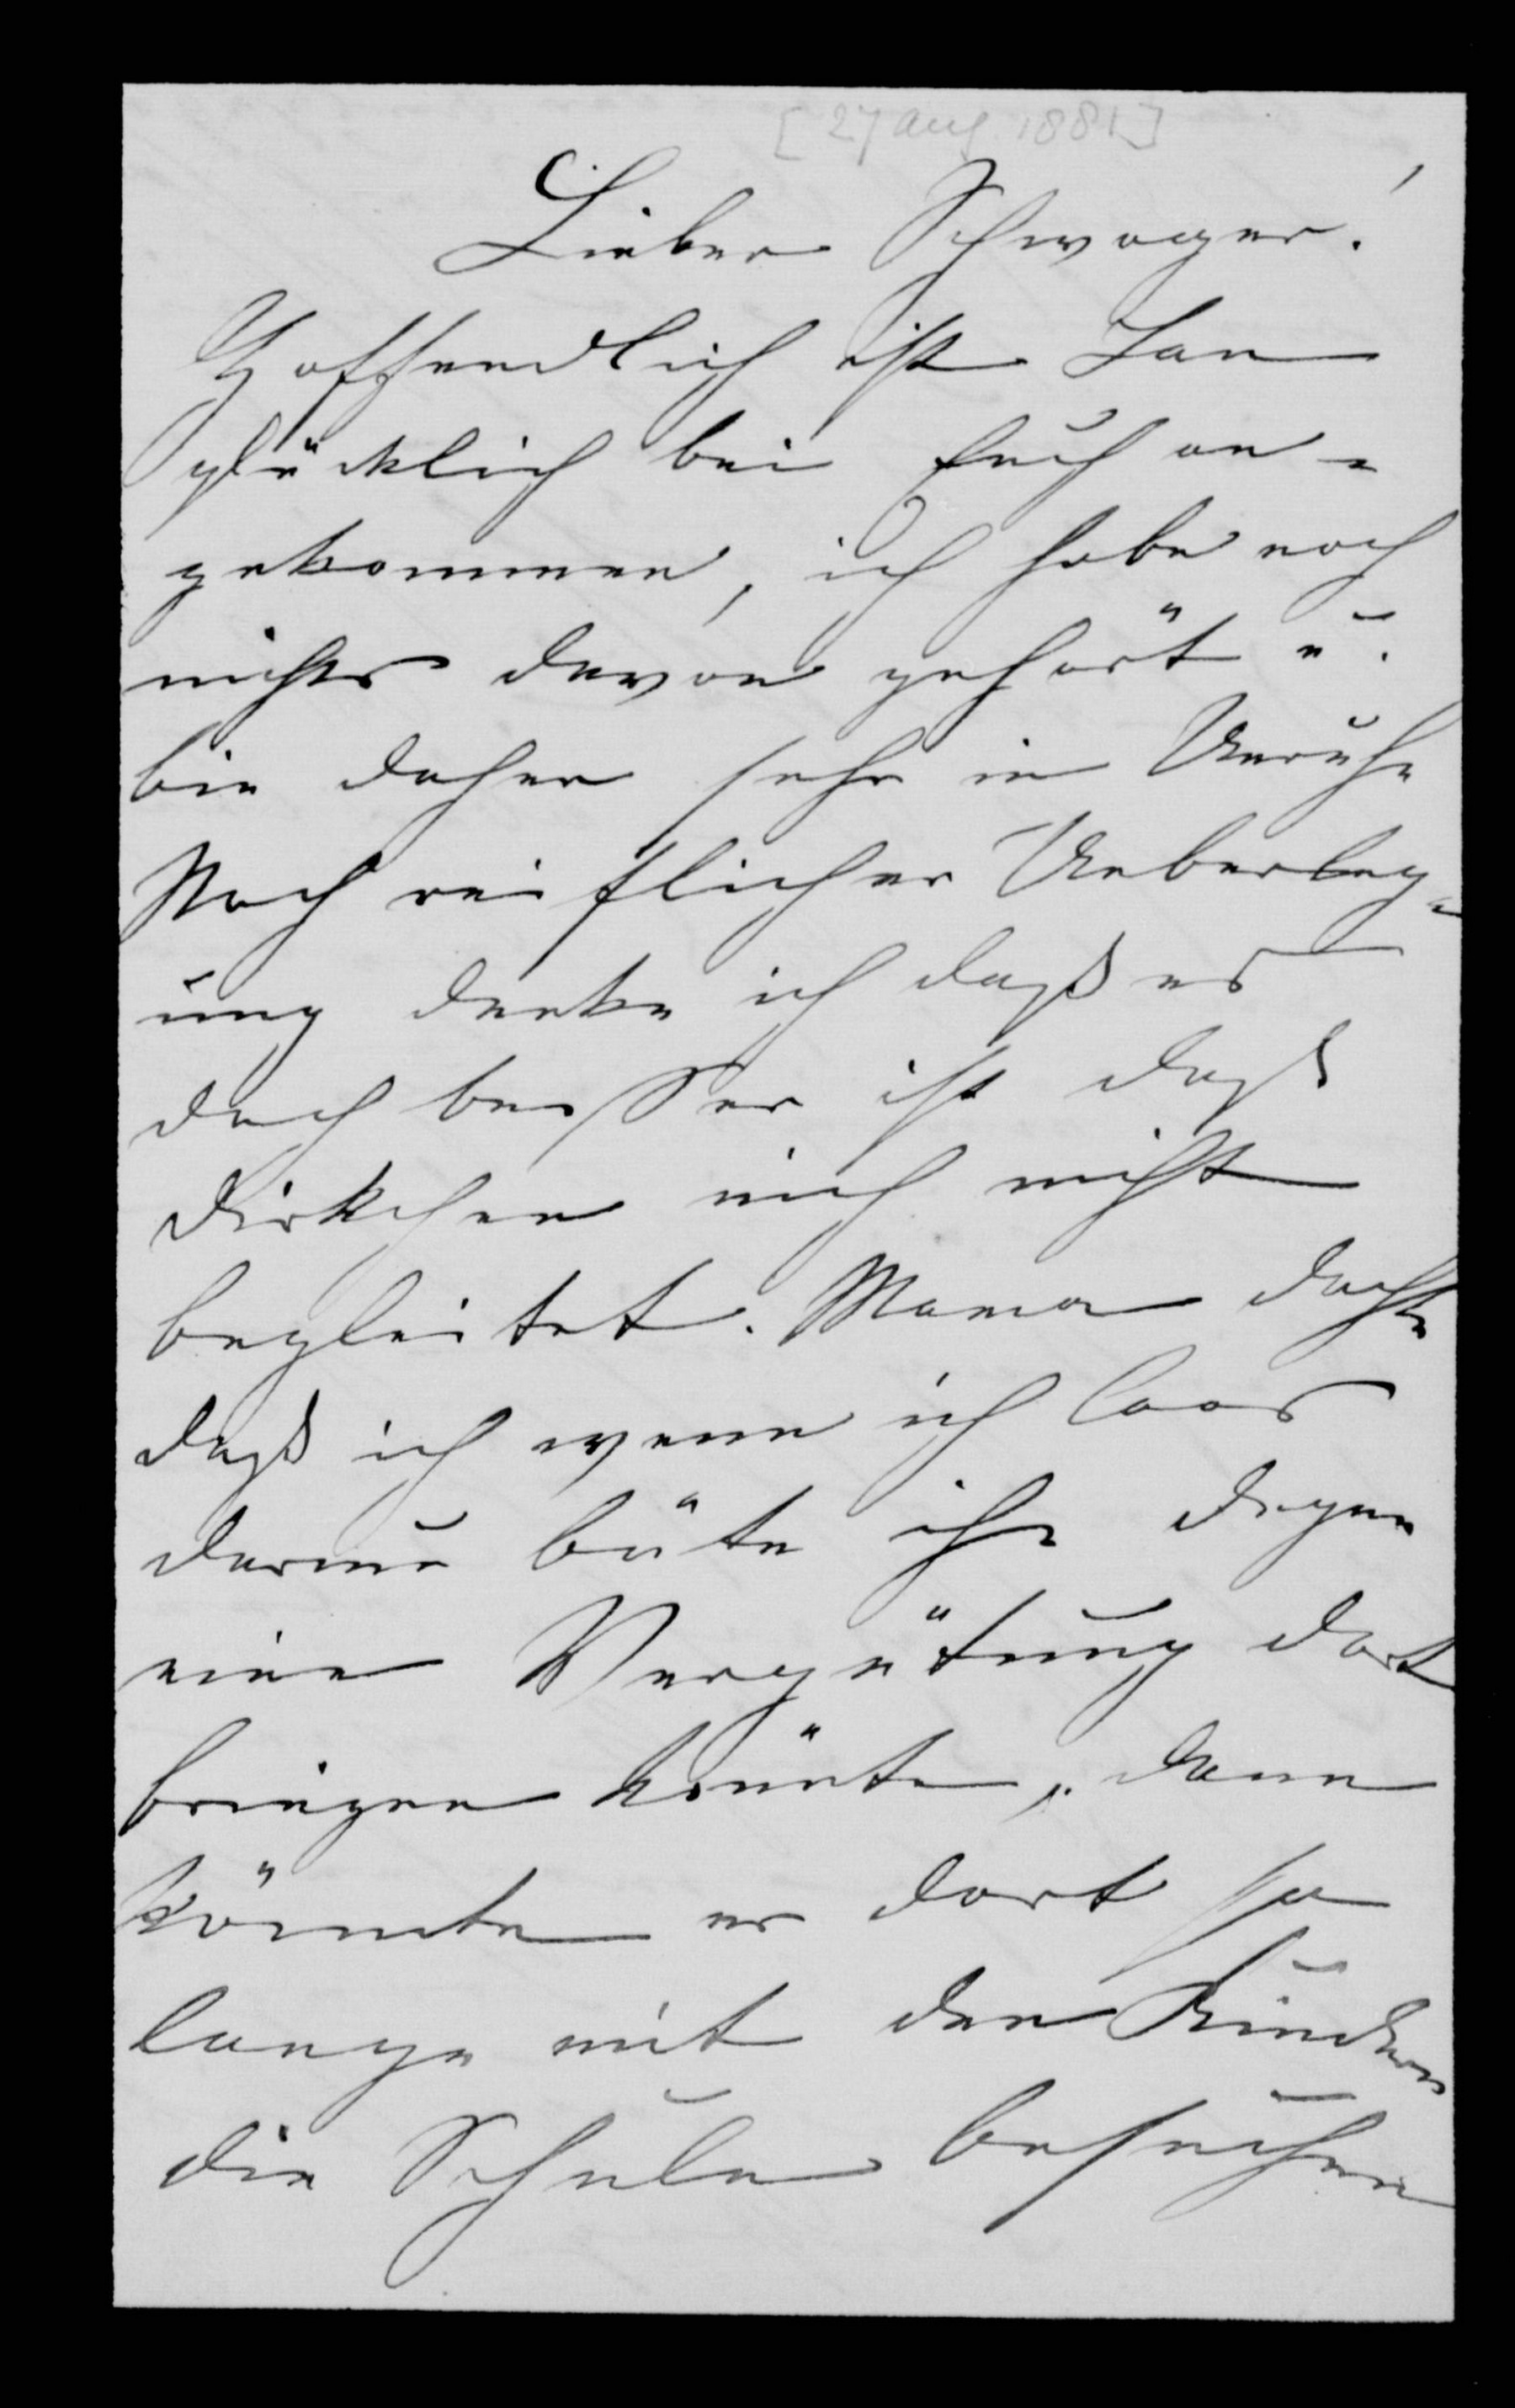 [27 Aug 1881]
Lieber Schwager!
Hoffendlich ist Jan
glücklich bei Euch an=
gekommen, ich habe noch
nichts davon gehört u.
bin daher sehr in Unruhe
Nach reiflicher Ueberleg=
ung denke ich daß es
doch besser ist daß
Dirkchen mich nicht
begleitet. Mama dachte
daß ich wenn ich Caos
darum bäte ihn degen
eine Vergütung dort
bringen könnte, dann
könnte er dort so
lange mit den Kindern
die Schule besuchen